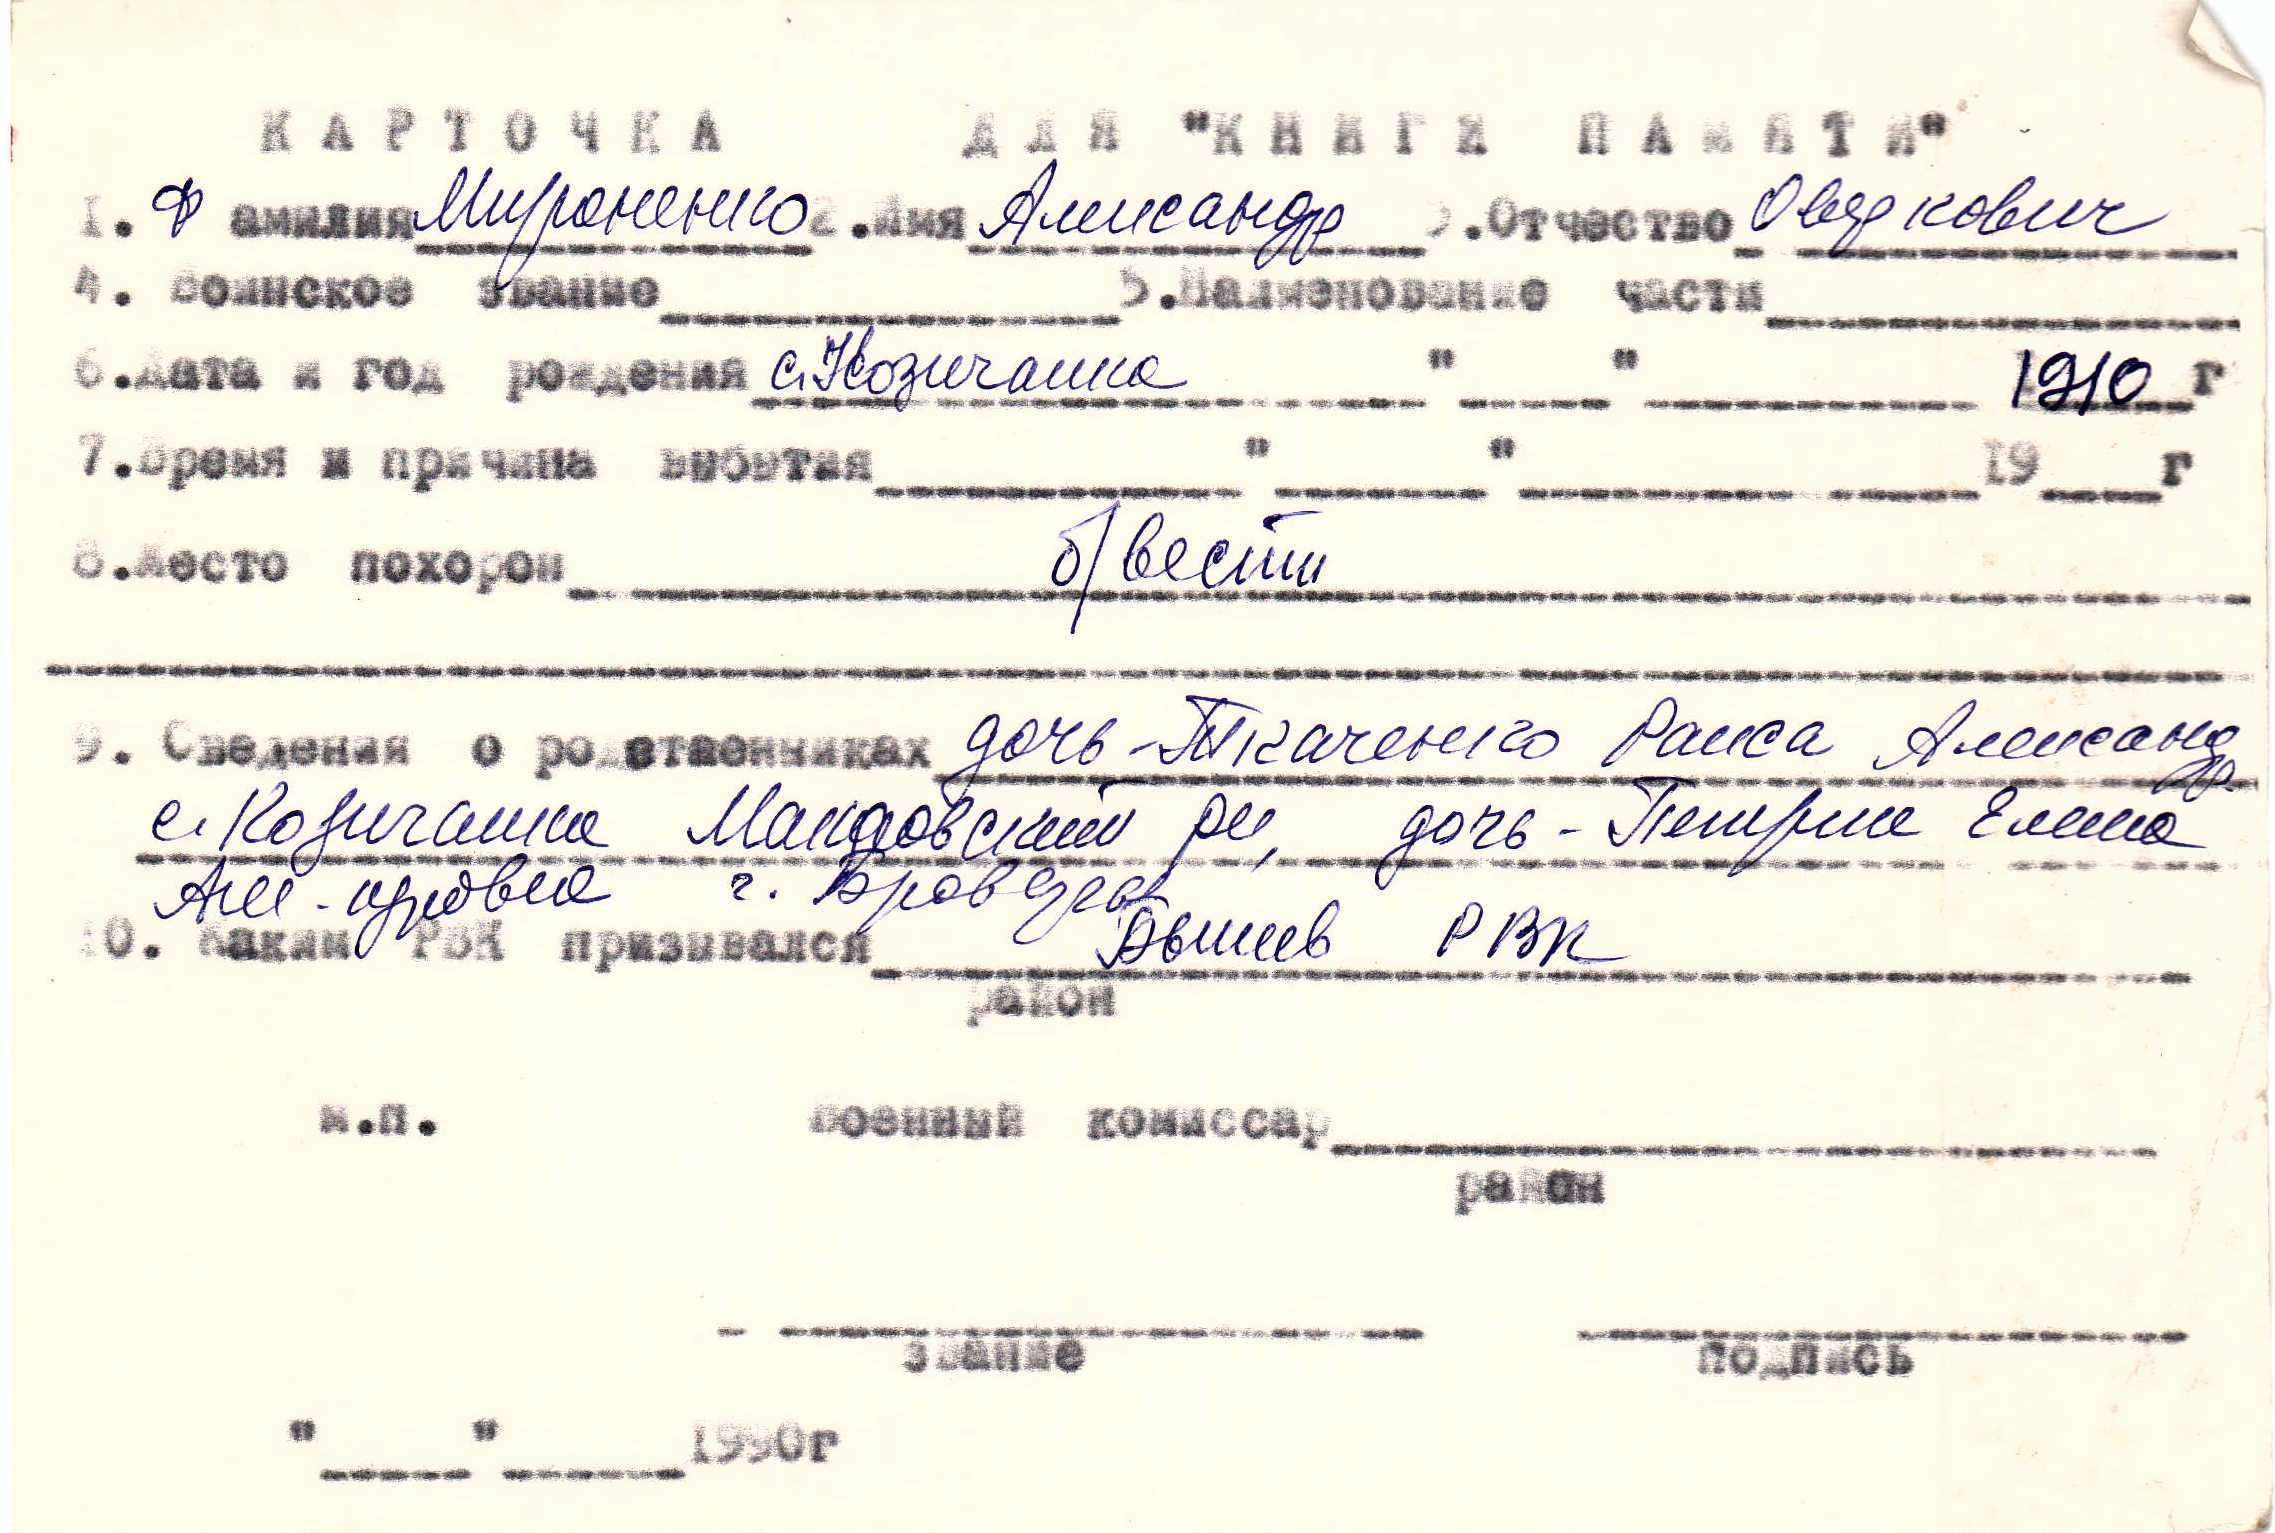 КАРТОЧКА ДЛЯ "КНИГИ ПАМЯТИ"
1. Фамилия Мироненко 2.Имя Александр 3.Отчество Овдкович
4. Воинское звание 5.Наименование части
6.Дата и год рождения с.Козичанка " " 1910 г
7.Время и причина выбытия " " 19 г
8.Место похорон б/вести
9. Сведения о родственниках дочь-Ткаченко Раиса Александр
с. Козичанка Макаровский рн, дочь - Петрик Елена
Ал-дровна г. Бровары
10. Каким РВК призывался Бышев РВК
район
м.п. Военный комиссар
район
звание подпись
" " 1990г